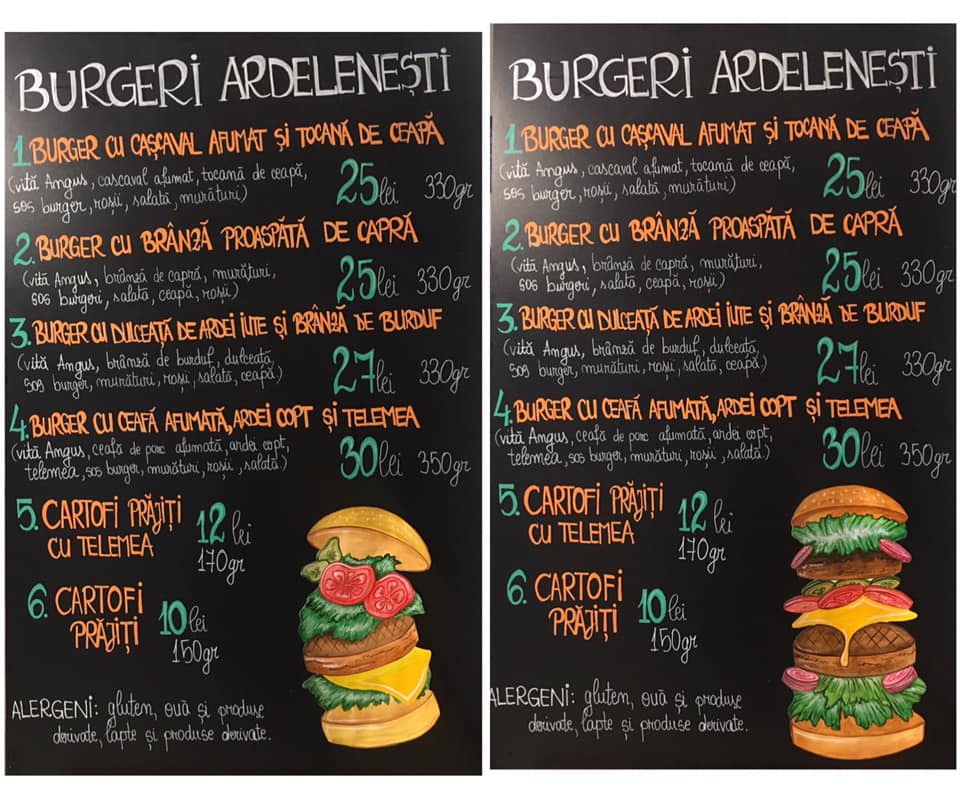 BURGERI ARDELENEȘTI
1. BURGER CU CAȘCAVAL AFUMAT ȘI TOCANĂ DE CEAPĂ
(vită Angus, cascaval afumat, tocană de ceapă,
sos burger, roșii, salată, murături)
25 lei 330gr
2. BURGER CU BRÂNZĂ PROASPĂTĂ DE CAPRĂ
(vită Angus, brânză de capră, murături,
sos burgeri, salată, ceapă, roșii)
25 lei 330gr
3. BURGER CU DULCEAȚĂ DE ARDEI IUTE ȘI BRÂNZĂ DE BURDUF
(vită Angus, brânză de burduf, dulceată,
sos burger, murături, roșii, salată, ceapă)
27 lei 330gr
4. BURGER CU CEAFĂ AFUMATĂ, ARDEI COPT ȘI TELEMEA
(vită Angus, ceafă de porc afumată, ardei copt,
telemea, sos burger, murături, roșii, salată)
30 lei 350gr
5. CARTOFI PRĂJIȚI
CU TELEMEA
12 lei
170gr
6. CARTOFI
PRĂJIȚI
10 lei
150gr
ALERGENI: gluten, ouă și produse
derivate, lapte și produse derivate.
BURGERI ARDELENEȘTI
1. BURGER CU CAȘCAVAL AFUMAT ȘI TOCANĂ DE CEAPĂ
(vită Angus, cascaval afumat, tocană de ceapă,
sos burger, roșii, salată, murături)
25 lei 330gr
2. BURGER CU BRÂNZĂ PROASPĂTĂ DE CAPRĂ
(vită Angus, brânză de capră, murături,
sos burgeri, salată, ceapă, roșii)
25 lei 330gr
3. BURGER CU DULCEAȚĂ DE ARDEI IUTE ȘI BRÂNZĂ DE BURDUF
(vită Angus, brânză de burduf, dulceată,
sos burger, murături, roșii, salată, ceapă)
27 lei 330gr
4. BURGER CU CEAFĂ AFUMATĂ, ARDEI COPT ȘI TELEMEA
(vită Angus, ceafă de porc afumată, ardei copt,
telemea, sos burger, murături, roșii, salată)
30 lei 350gr
5. CARTOFI PRĂJIȚI
CU TELEMEA
12 lei
170gr
6. CARTOFI
PRĂJIȚI
10 lei
150gr
ALERGENI: gluten, ouă și produse
derivate, lapte și produse derivate.